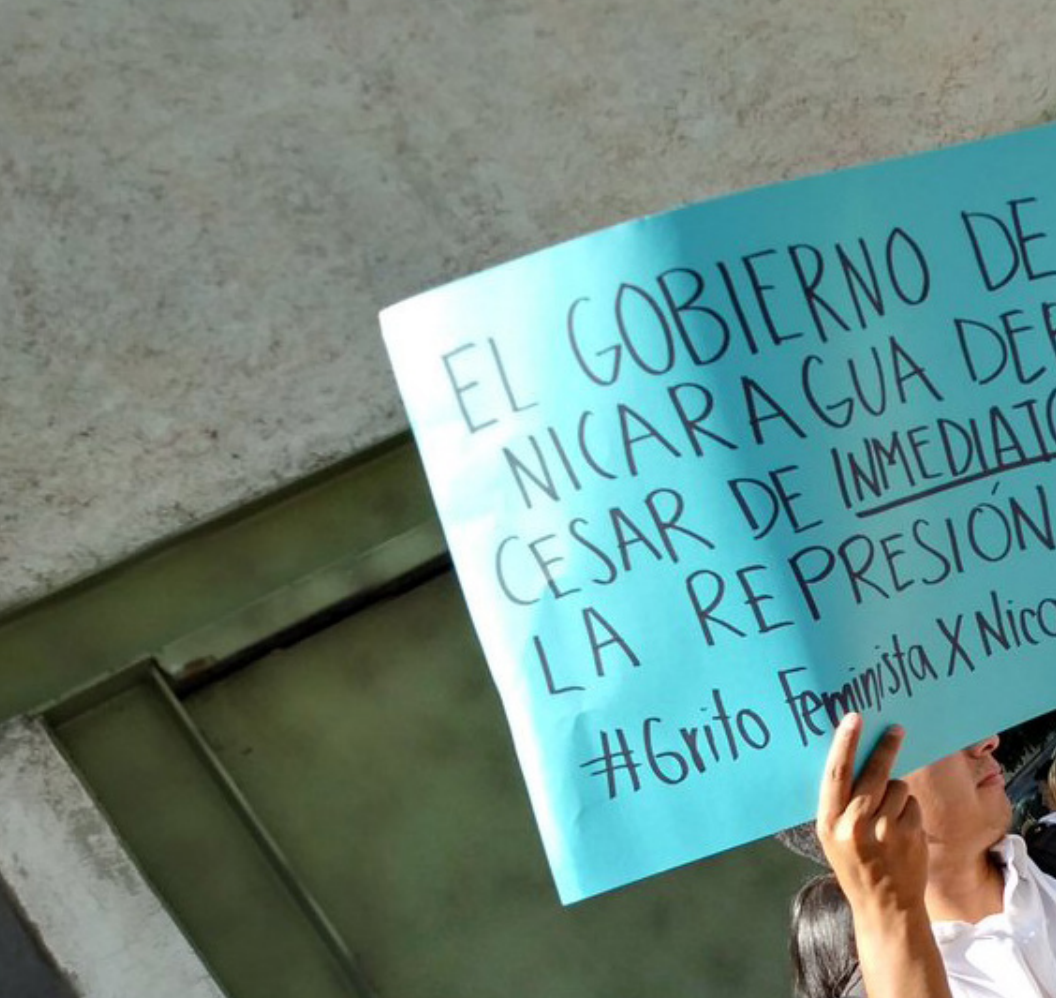 EL GOBIERNO DE
NICARAGUA
CESAR DE INMEDIATO
LA REPRESIÓN
#Grito Feminista X Nica